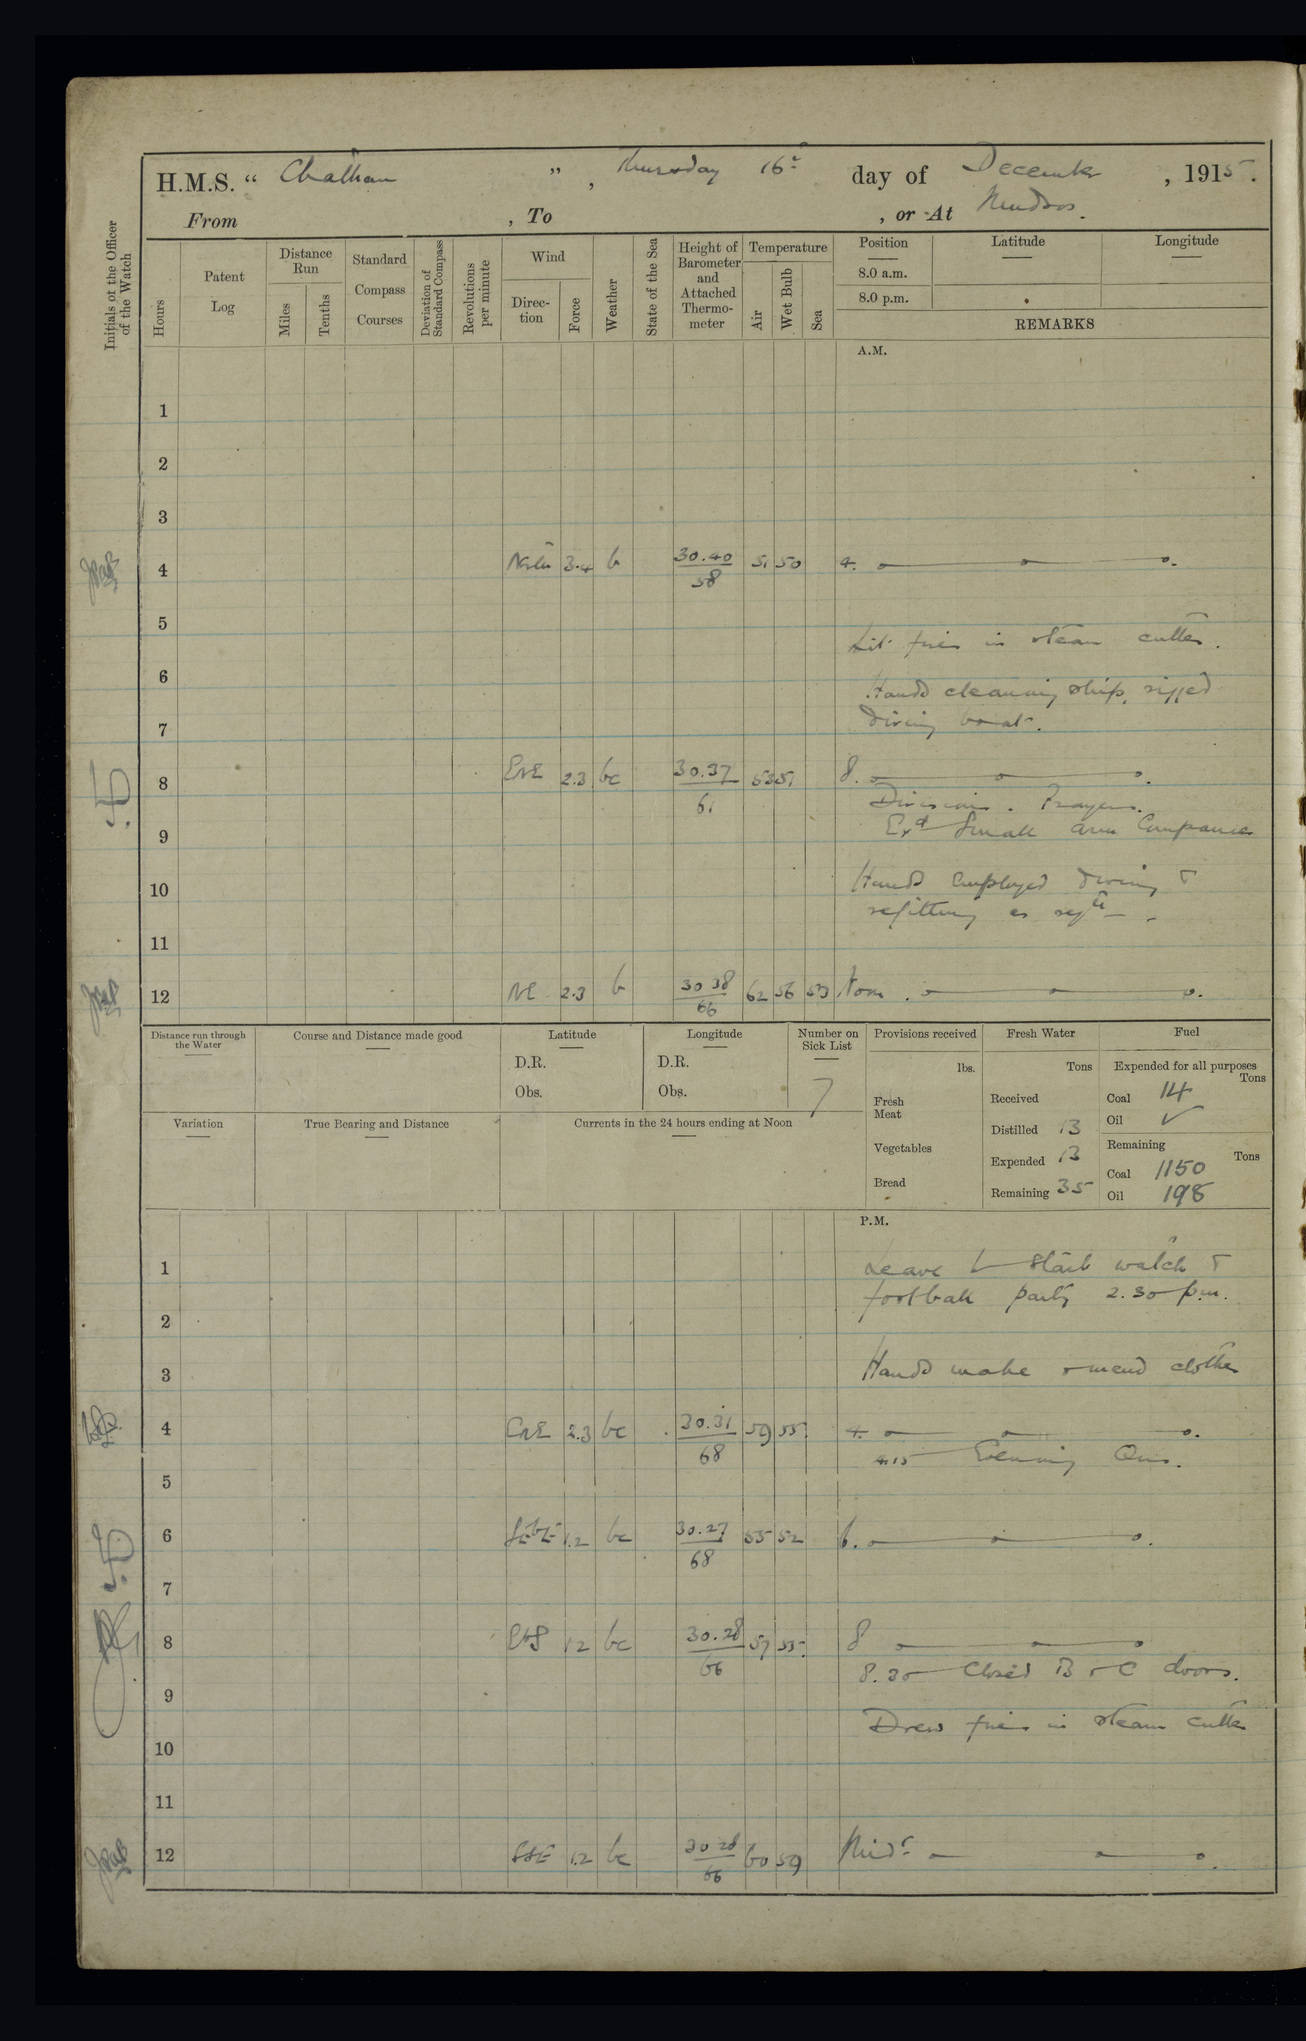 H.M.S. “ Chatham ”, Thursday 16th day of December, 1915.
From , To , or At Mudros.
Initials of the Officer of the Watch
Hours
Patent Log
Distance Run
Miles
Tenths
Standard Compass Courses
Deviation of Standard Compass
Revolutions per minute
Wind
Direction
Force
Weather
State of the Sea
Height of Barometer and Attached Thermometer
Temperature
Air
Wet Bulb
Sea
Position Latitude Longitude
8.0 a.m.
8.0 p.m.
REMARKS
A.M.
1
2
3
4 3.4 b 30.40 58 51 50 4.
5
Lit fires in steam cutter.
6
Hands cleaning ship, rigged
7 diving boat.
8 ENE 2.3 bc 30.37 61 53 51 8.
Divisions. Prayers.
9 Exd Small Arm Companies
10 Hands employed diving &
refitting as reqte.
11
12 NE 2.3 b 30 38 66 62 56 53 Noon.
Distance run through the Water
Course and Distance made good
Latitude
D.R.
Obs.
Longitude
D.R.
Obs.
Number on Sick List
7
Provisions received
lbs.
Fresh Meat
Vegetables
Bread
Fresh Water
Tons
Received
Distilled 13
Expended 13
Remaining 35
Fuel
Expended for all purposes
Tons
Coal 14
Oil ✓
Remaining
Tons
Coal 1150
Oil 198
Variation
True Bearing and Distance
Currents in the 24 hours ending at Noon
P.M.
1 Leave to Starb watch &
football party 2.30 p.m.
2
3 Hands make & mend clothes
4 ENE 2.3 bc 30.31 68 59 55 4.
4.15 Evening Qrs.
5
6 SEbE 1.2 bc 30.27 68 55 52 6.
7
8 EbS 1.2 bc 30.28 66 57 55 8
8.30 Closed B & C doors.
9
Drew fires in steam cutter
10
11
12 SSE 1.2 bc 30 28 66 60 59 Midt.